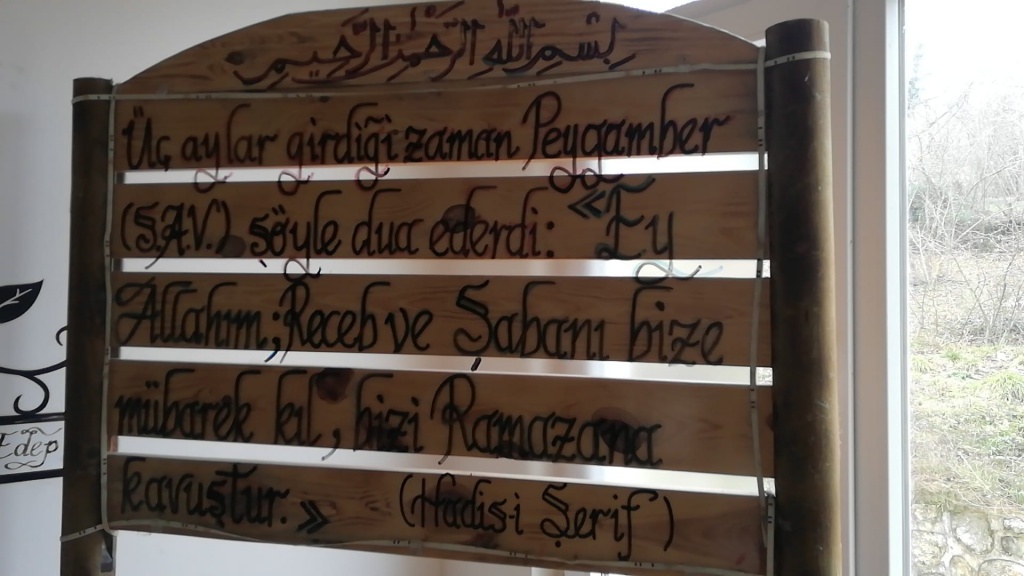 بِسْمِ اللّٰهِ الرَّحْمٰنِ الرَّحِيمِ
Üç aylar girdiği zaman Peygamber
(S.A.V.) şöyle dua ederdi: «Ey
Allahım; Receb ve Şabanı bize
mübarek kıl, bizi Ramazana
kavuştur.» (Hadisi Şerif)
Edep